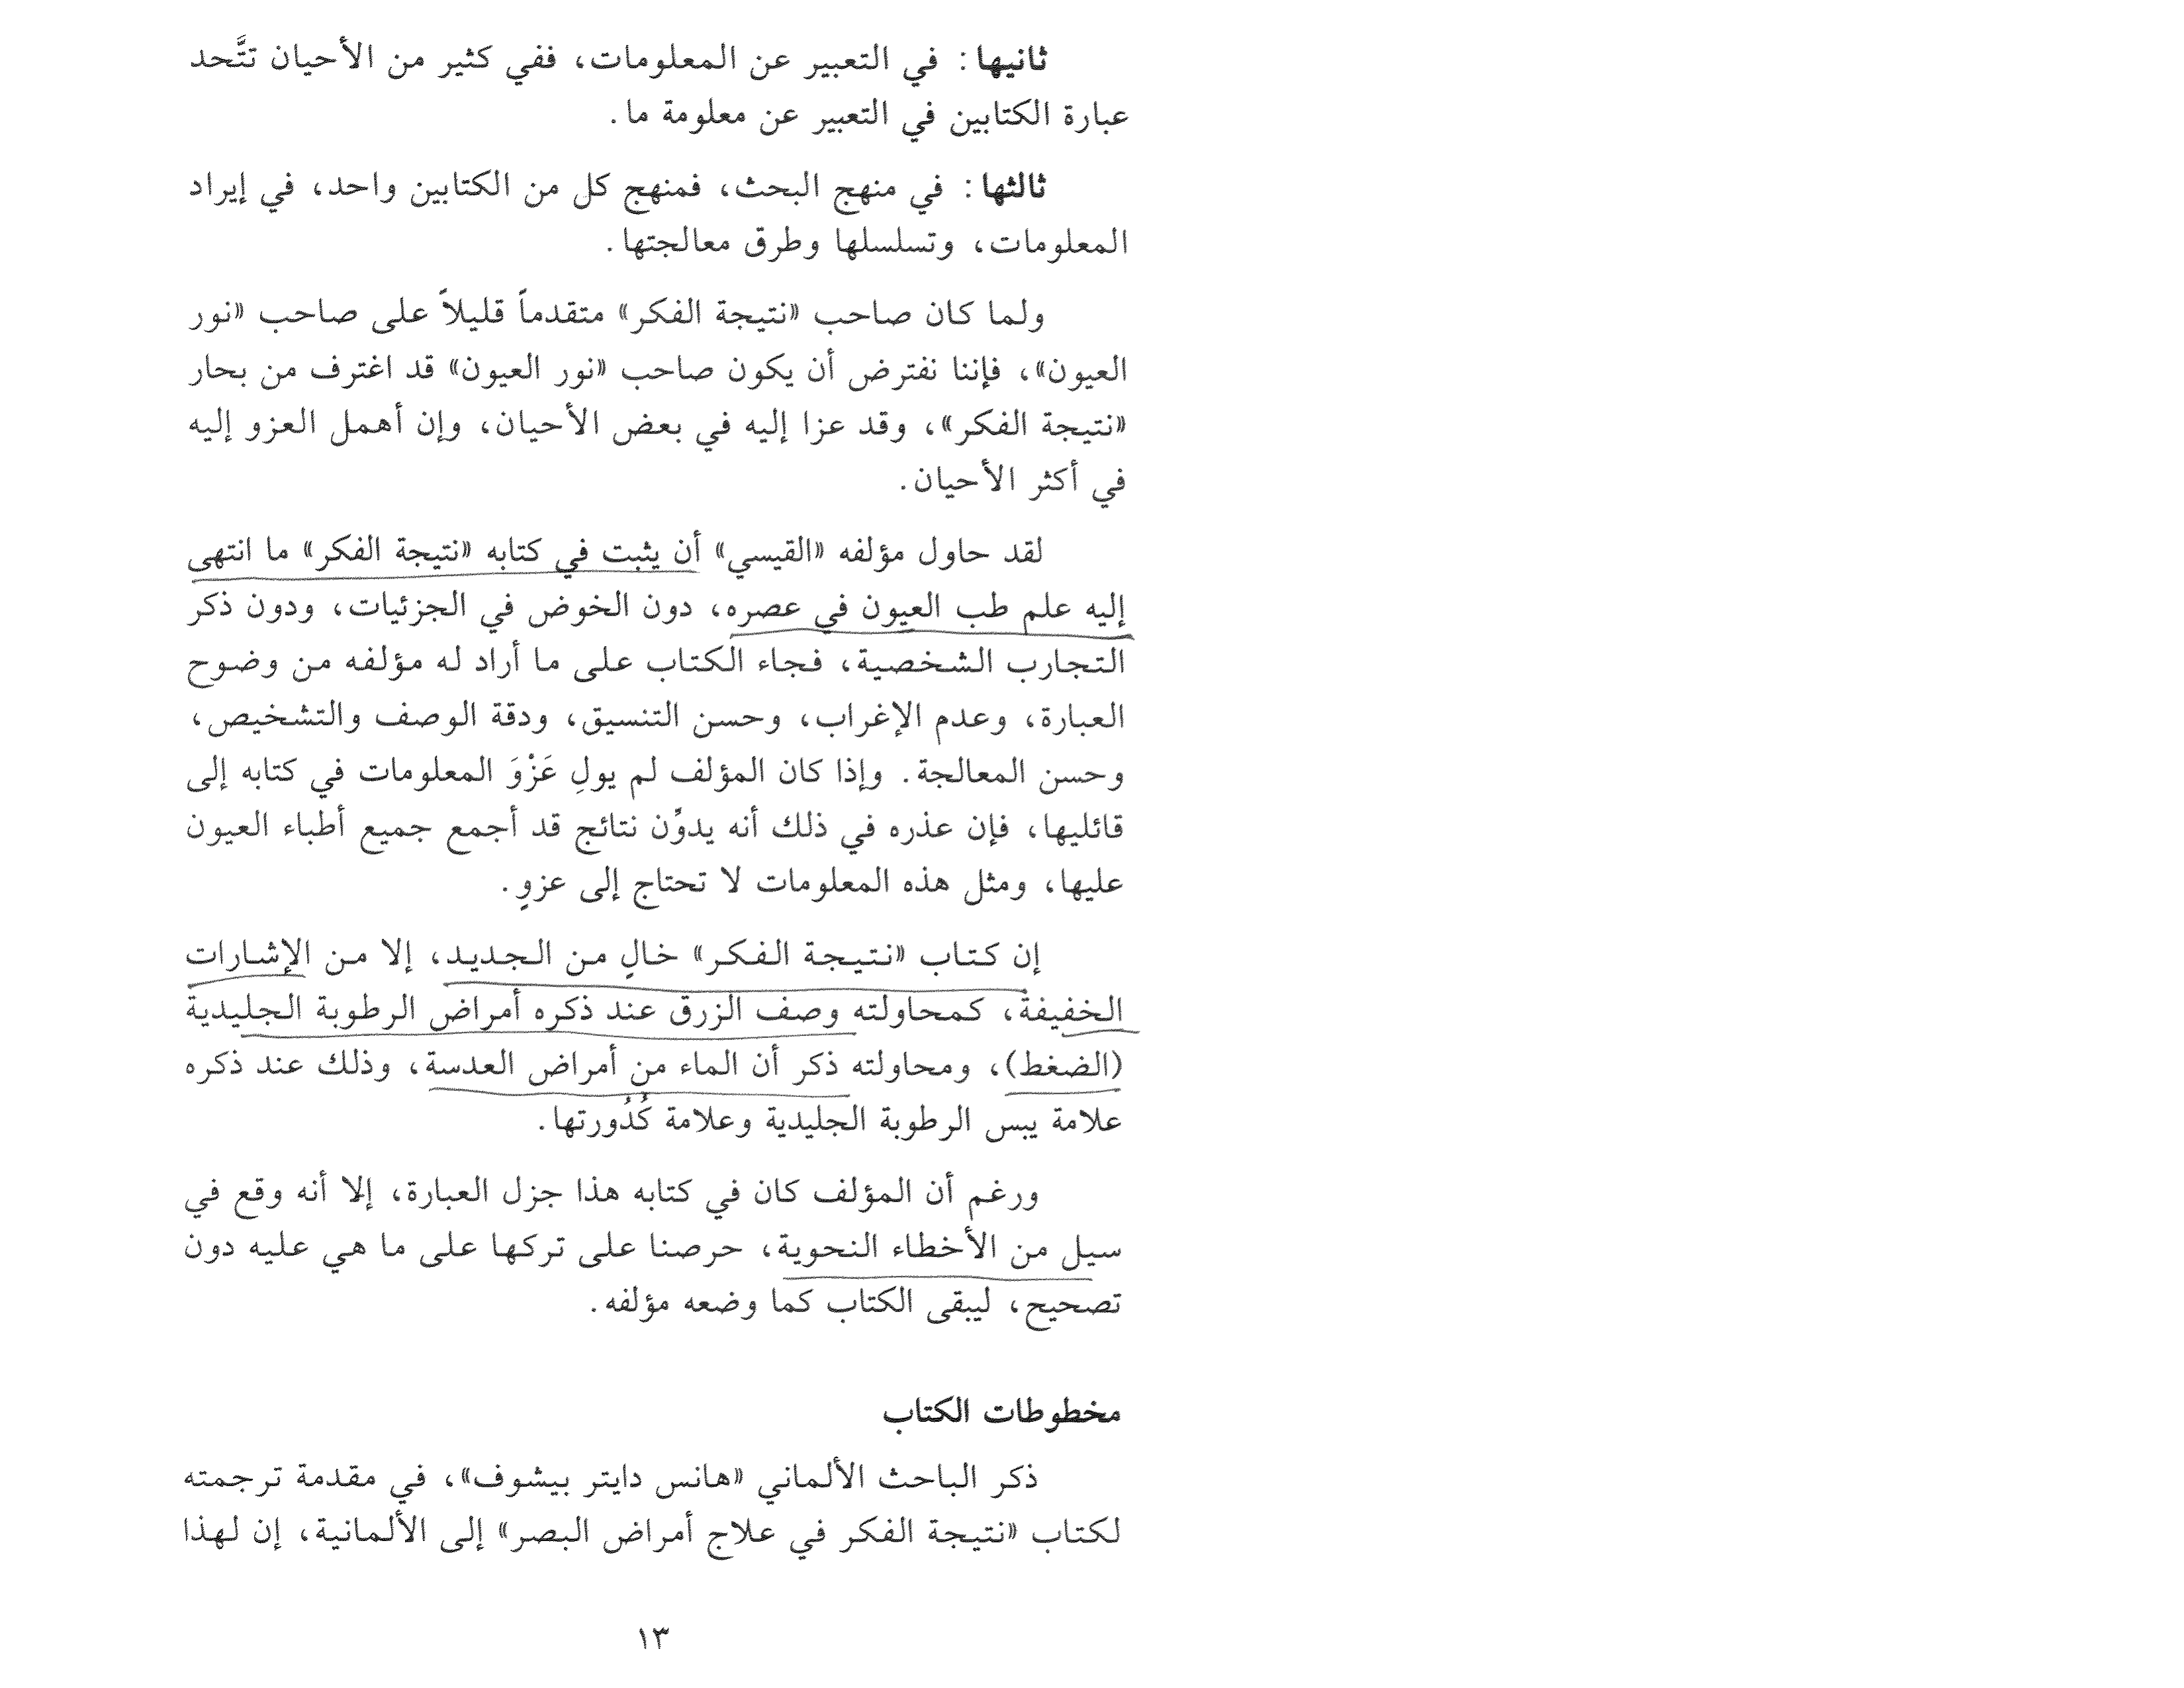 ثانيها: في التعبير عن المعلومات، ففي كثير من الأحيان تتَّحد
عبارة الكتابين في التعبير عن معلومة ما.
ثالثها: في منهج البحث، فمنهج كل من الكتابين واحد، في إيراد
المعلومات، وتسلسلها وطرق معالجتها.
ولما كان صاحب «نتيجة الفكر» متقدماً قليلاً على صاحب «نور
العيون»، فإننا نفترض أن يكون صاحب «نور العيون» قد اغترف من بحار
«نتيجة الفكر»، وقد عزا إليه في بعض الأحيان، وإن أهمل العزو إليه
في أكثر الأحيان.
لقد حاول مؤلفه «القيسي» أن يثبت في كتابه «نتيجة الفكر» ما انتهى
إليه علم طب العيون في عصره، دون الخوض في الجزئيات، ودون ذكر
التجارب الشخصية، فجاء الكتاب على ما أراد له مؤلفه من وضوح
العبارة، وعدم الإغراب، وحسن التنسيق، ودقة الوصف والتشخيص،
وحسن المعالجة. وإذا كان المؤلف لم يولِ عَزْوَ المعلومات في كتابه إلى
قائليها، فإن عذره في ذلك أنه يدوِّن نتائج قد أجمع جميع أطباء العيون
عليها، ومثل هذه المعلومات لا تحتاج إلى عزوٍ.
إن كتاب «نتيجة الفكر» خالٍ من الجديد، إلا من الإشارات
الخفيفة، كمحاولته وصف الزرق عند ذكره أمراض الرطوبة الجليدية
(الضغط)، ومحاولته ذكر أن الماء من أمراض العدسة، وذلك عند ذكره
علامة يبس الرطوبة الجليدية وعلامة كُدُورتها.
ورغم أن المؤلف كان في كتابه هذا جزل العبارة، إلا أنه وقع في
سيل من الأخطاء النحوية، حرصنا على تركها على ما هي عليه دون
تصحيح، ليبقى الكتاب كما وضعه مؤلفه.
مخطوطات الكتاب
ذكر الباحث الألماني «هانس دايتر بيشوف»، في مقدمة ترجمته
لكتاب «نتيجة الفكر في علاج أمراض البصر» إلى الألمانية، إن لهذا
١٣